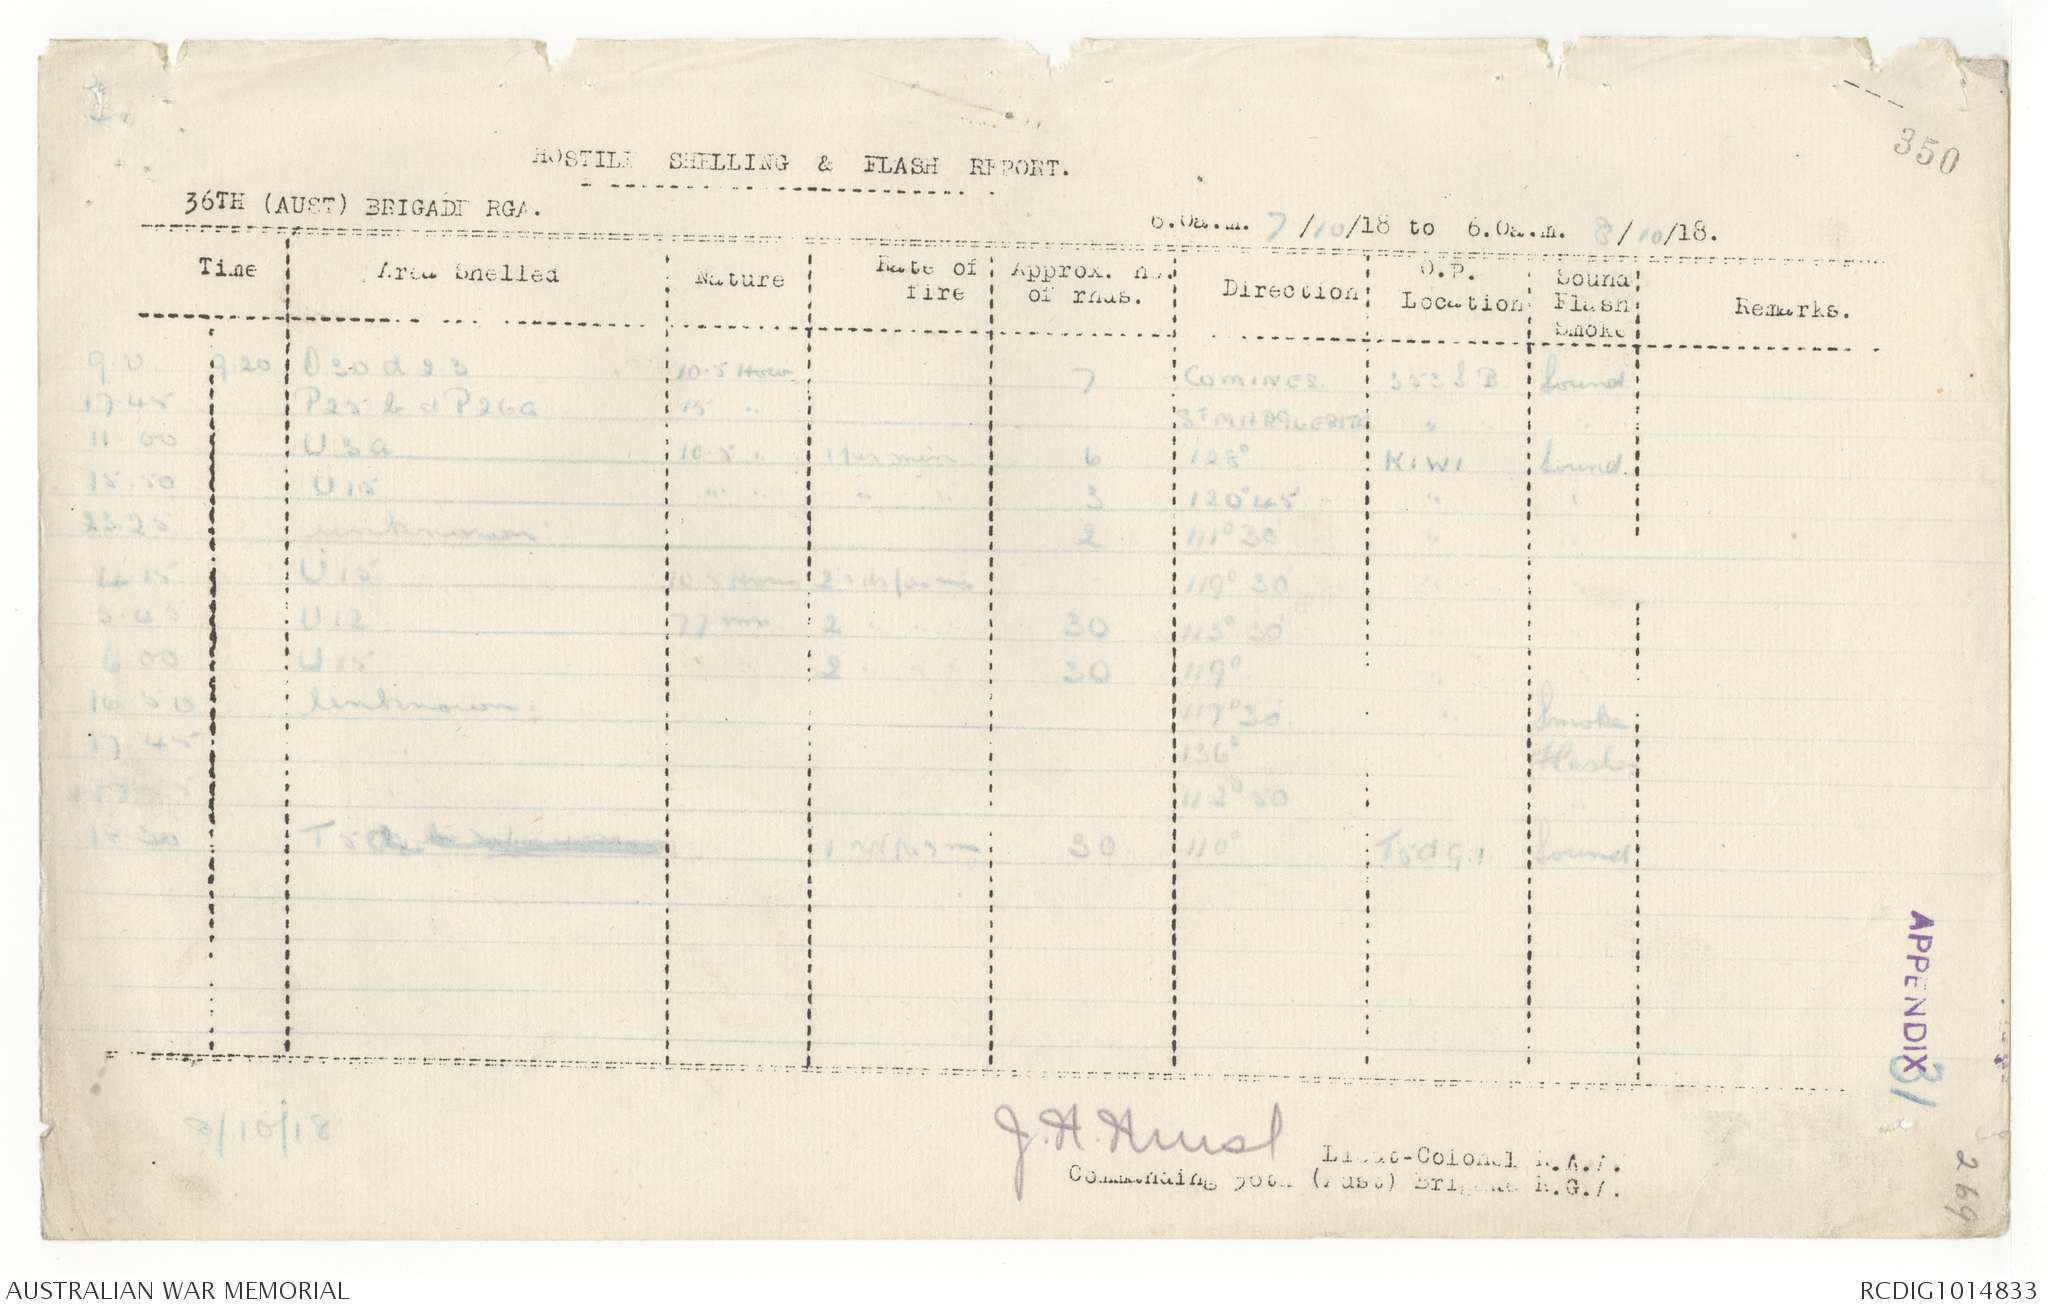 I.
350
HOSTILE SHELLING & FLASH REPORT.
36TH (AUST) BRIGADE RGA.
6.0a.m. 7/10/18 to 6.0a.m. 8/10/18.
Time Area Shelled Nature Rate of fire Approx. no. of rnds. Direction O.P. Location Sound Flash Smoke Remarks.
9 0 9.20 O30 d 23 10.5 How 7 COMINES 353 S B Sound
17 45 P25 b d P26a 15 " ST MARGUERITE " " "
11 00 U 3 a 10.5 " 1 per min 6 125° KIWI Sound
15.50 U 15 " " " " 3 120°45 " "
23.25 unknown 2 111°30 "
4 15 U 15 10.5 How 119° 30 "
5.45 U 12 77 mm 2 " " 30 115° 30 "
6 00 U 15 " " 2 " " 30 119° "
16 50 Unknown 117°30 " Smoke
17 45 " 136° Flash
" 112°50 "
30 1 30 110° T5d9.1 Sound
APPENDIX
31
8/10/18
Lieut-Colonel R.A.A.
Commanding 36th (Aust) Brigade R.G.A.
269
AUSTRALIAN WAR MEMORIAL
RCDIG1014833